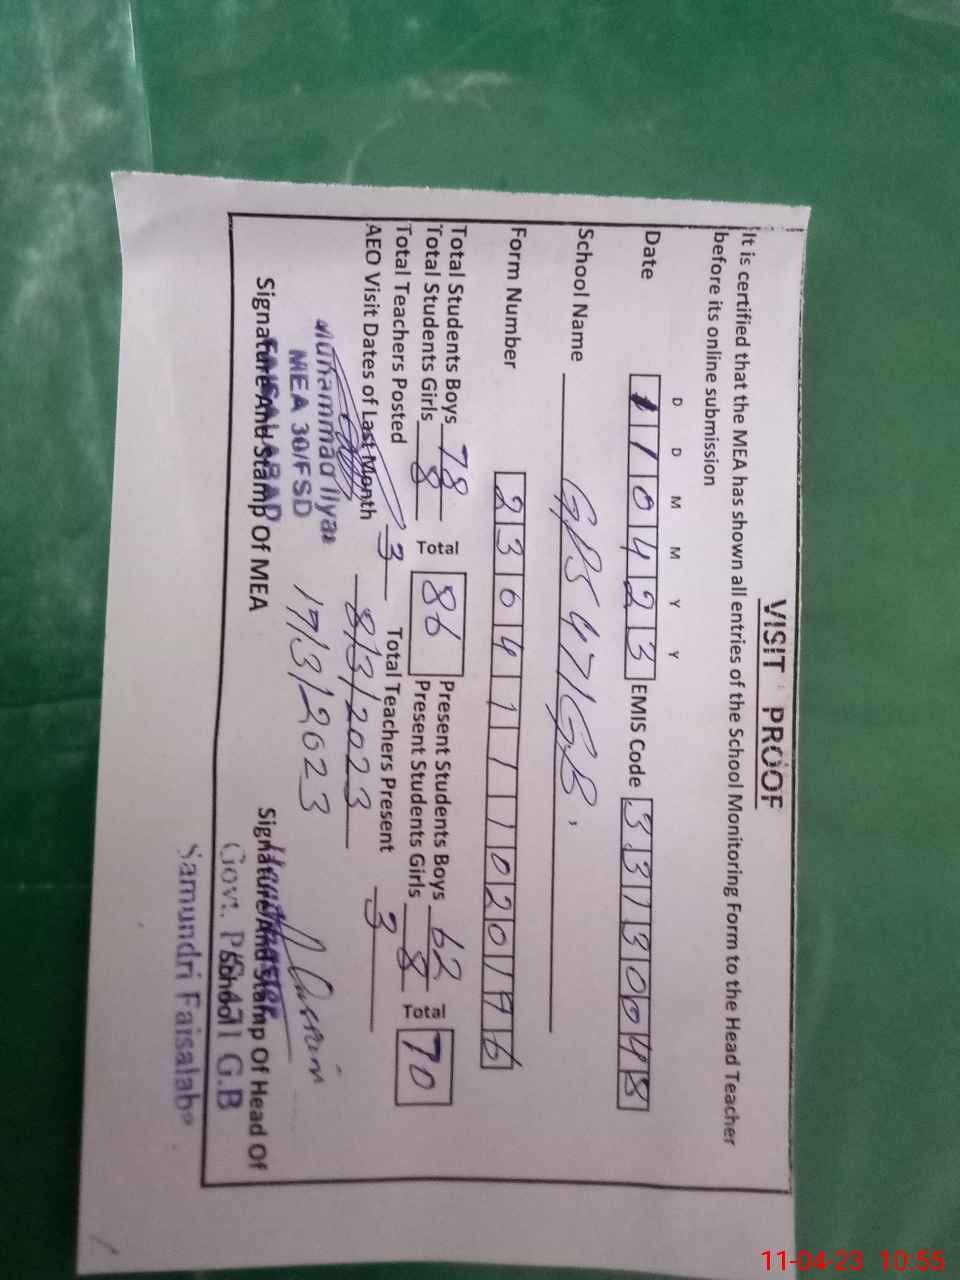 VISIT PROOF
It is certified that the MEA has shown all entries of the School Monitoring Form to the Head Teacher
before its online submission
D D M M Y Y
Date 110423 EMIS Code 33130048
School Name GPS 471 G.B.
Form Number 2304111020196
Total Students Boys 78 Present Students Boys 62
Total Students Girls 8 Total 86 Present Students Girls 8 Total 70
Total Teachers Posted 3 Total Teachers Present 3
AEO Visit Dates of Last Month 8/3/2023
17/3/2023
Muhammad Ilyas
MEA 30/FSD
FAISALABAD
Signature And Stamp Of MEA
Headmaster
Signature And Stamp Of Head Of
School
Govt. P/S 471 G.B
Samundri Faisalab
11-04-23 10:55